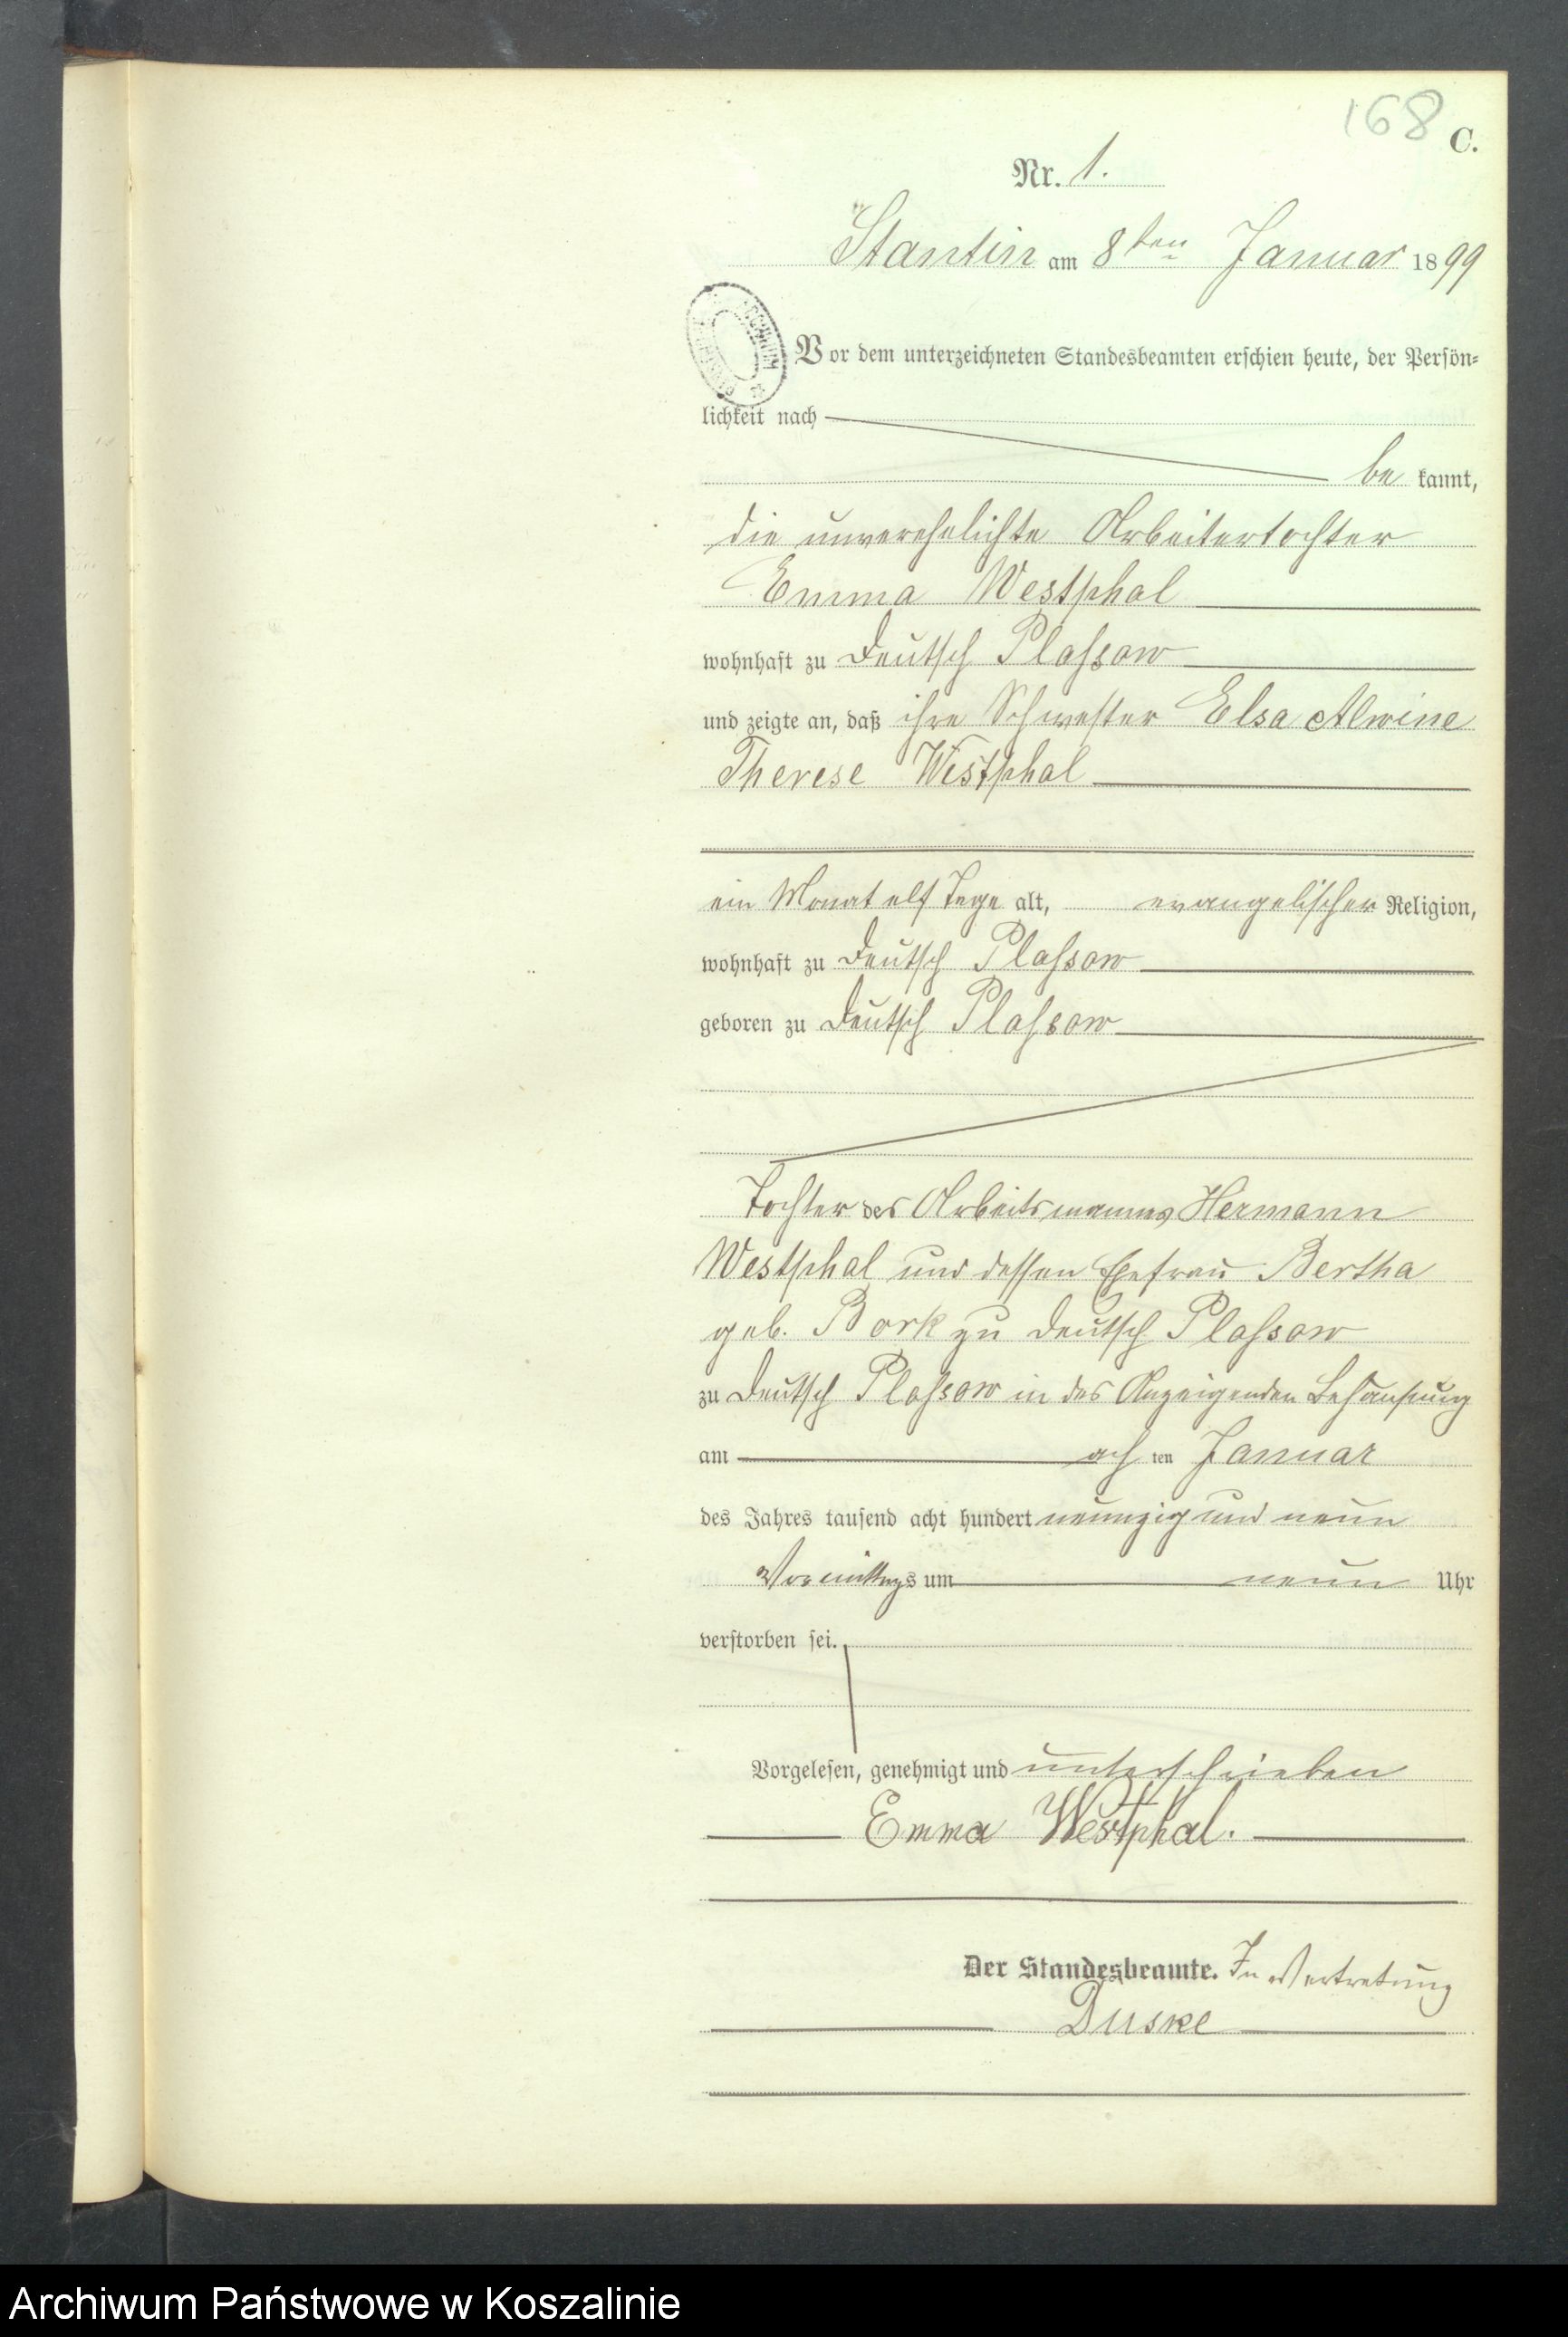 168
C.
Nr. 1.
Stantin am 8ten Januar 1899
Vor dem unterzeichneten Standesbeamten erschien heute, der Persön-
lichkeit nach
be kannt,
die unverehelichte Arbeitertochter
Emma Westphal
wohnhaft zu Deutsch Plassow
und zeigte an, daß ihre Schwester Elsa Alwine
Therese Westphal
ein Monat elf Tage alt, evangelischer Religion,
wohnhaft zu Deutsch Plassow
geboren zu Deutsch Plassow
Tochter des Arbeitsmannes Hermann
Westphal und dessen Ehefrau Bertha
geb. Bork zu Deutsch Plassow
zu Deutsch Plassow in des Anzeigenden Behausung
am acht ten Januar
des Jahres tausend acht hundert neunzig und neun
Vormittags um neun Uhr
verstorben sei.
Vorgelesen, genehmigt und unterschrieben
Emma Westphal.
Der Standesbeamte. In Vertretung
Duske
Archiwum Państwowe w Koszalinie